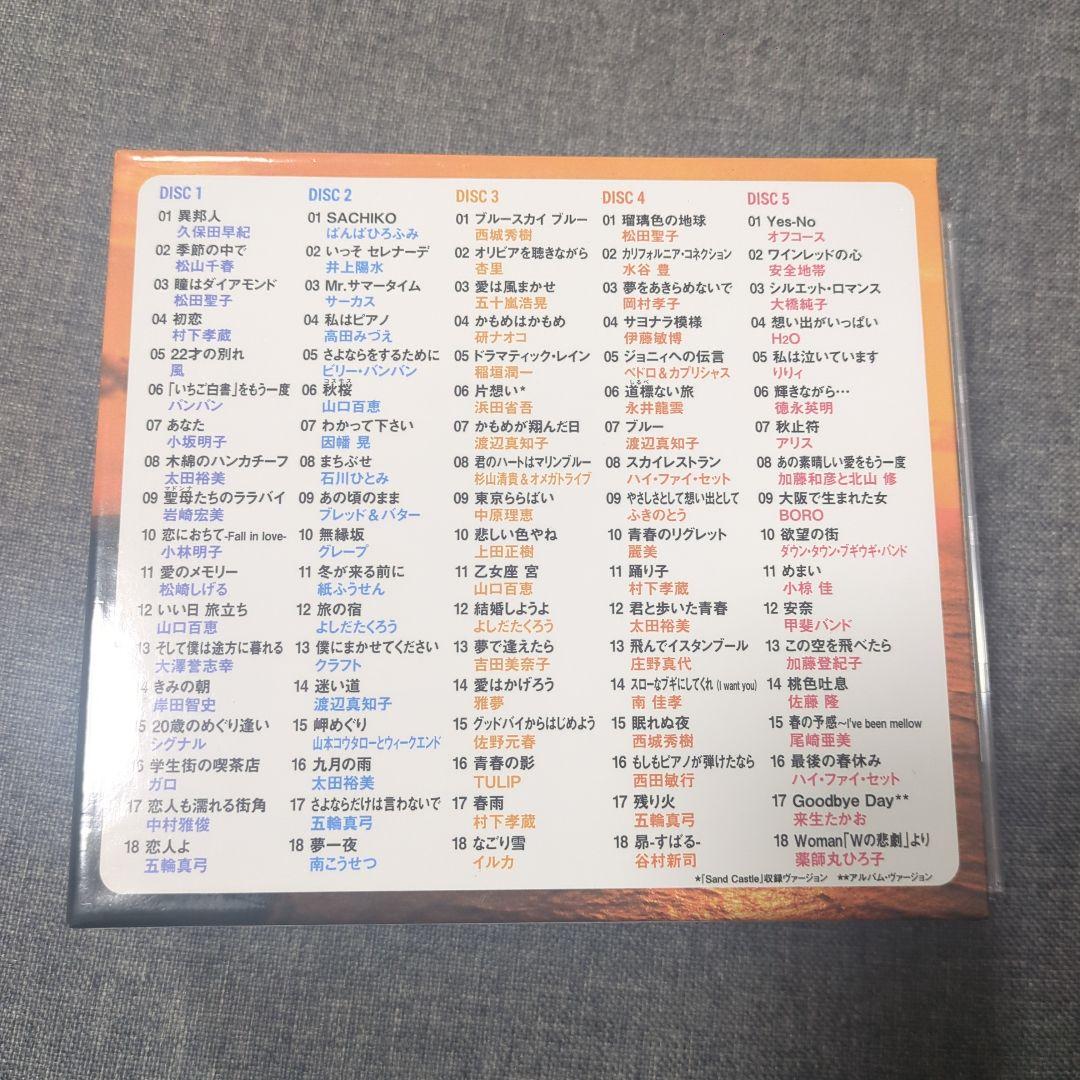 DISC 1
01 異邦人
久保田早紀
02 季節の中で
松山千春
03 瞳はダイアモンド
松田聖子
04 初恋
村下孝蔵
05 22才の別れ
風
06 「いちご白書」をもう一度
バンバン
07 あなた
小坂明子
08 木綿のハンカチーフ
太田裕美
マドンナ
09 聖母たちのララバイ
岩崎宏美
10 恋におちて-Fall in love-
小林明子
11 愛のメモリー
松崎しげる
12 いい日 旅立ち
山口百恵
13 そして僕は途方に暮れる
大澤誉志幸
14 きみの朝
岸田智史
15 20歳のめぐり逢い
シグナル
16 学生街の喫茶店
ガロ
17 恋人も濡れる街角
中村雅俊
18 恋人よ
五輪真弓
DISC 2
01 SACHIKO
ばんばひろふみ
02 いっそ セレナーデ
井上陽水
03 Mr.サマータイム
サーカス
04 私はピアノ
高田みづえ
05 さよならをするために
ビリー・バンバン
コスモス
06 秋桜
山口百恵
07 わかって下さい
因幡 晃
08 まちぶせ
石川ひとみ
09 あの頃のまま
ブレッド&バター
10 無縁坂
グレープ
11 冬が来る前に
紙ふうせん
12 旅の宿
よしだたくろう
13 僕にまかせてください
クラフト
14 迷い道
渡辺真知子
15 岬めぐり
山本コウタローとウィークエンド
16 九月の雨
太田裕美
17 さよならだけは言わないで
五輪真弓
18 夢一夜
南こうせつ
DISC 3
01 ブルースカイ ブルー
西城秀樹
02 オリビアを聴きながら
杏里
03 愛は風まかせ
五十嵐浩晃
04 かもめはかもめ
研ナオコ
05 ドラマティック・レイン
稲垣潤一
06 片想い*
浜田省吾
07 かもめが翔んだ日
渡辺真知子
08 君のハートはマリンブルー
杉山清貴&オメガトライブ
09 東京ららばい
中原理恵
10 悲しい色やね
上田正樹
11 乙女座 宮
山口百恵
12 結婚しようよ
よしだたくろう
13 夢で逢えたら
吉田美奈子
14 愛はかげろう
雅夢
15 グッドバイからはじめよう
佐野元春
16 青春の影
TULIP
17 春雨
村下孝蔵
18 なごり雪
イルカ
DISC 4
01 瑠璃色の地球
松田聖子
02 カリフォルニア・コネクション
水谷 豊
03 夢をあきらめないで
岡村孝子
04 サヨナラ模様
伊藤敏博
05 ジョニィへの伝言
ペドロ&カプリシャス
しるべ
06 道標ない旅
永井龍雲
07 ブルー
渡辺真知子
08 スカイレストラン
ハイ・ファイ・セット
09 やさしさとして想い出として
ふきのとう
10 青春のリグレット
麗美
11 踊り子
村下孝蔵
12 君と歩いた青春
太田裕美
13 飛んでイスタンブール
庄野真代
14 スローなブギにしてくれ (I want you)
南 佳孝
15 眠れぬ夜
西城秀樹
16 もしもピアノが弾けたなら
西田敏行
17 残り火
五輪真弓
18 昴-すばる-
谷村新司
DISC 5
01 Yes-No
オフコース
02 ワインレッドの心
安全地帯
03 シルエット・ロマンス
大橋純子
04 想い出がいっぱい
H2O
05 私は泣いています
りりィ
06 輝きながら…
徳永英明
07 秋止符
アリス
08 あの素晴しい愛をもう一度
加藤和彦と北山 修
09 大阪で生まれた女
BORO
10 欲望の街
ダウン・タウン・ブギウギ・バンド
11 めまい
小椋 佳
12 安奈
甲斐バンド
13 この空を飛べたら
加藤登紀子
14 桃色吐息
佐藤 隆
15 春の予感〜I've been mellow
尾崎亜美
16 最後の春休み
ハイ・ファイ・セット
17 Goodbye Day**
来生たかお
18 Woman「Wの悲劇」より
薬師丸ひろ子
*「Sand Castle」収録ヴァージョン **アルバム・ヴァージョン